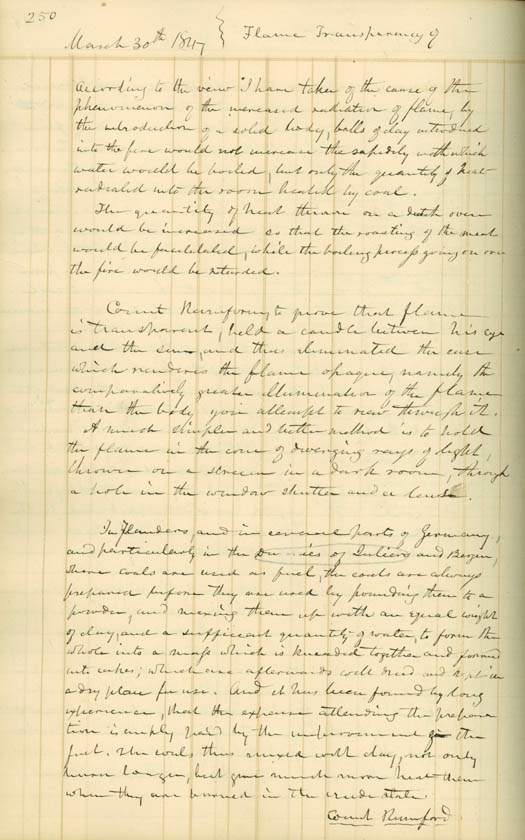 250
March 30th 1847 { Flame Transparency of
According to the view I have taken of the cause of the
phenominenon of the increased radiation of flame, by
the introduction of a solid body, balls of clay introdused
into the fire would not increase the rapidity with which
water would be boiled, but only the quantity of heat
radiated into the room heated by coal.
The quantity of heat thrown on a dutch oven
would be increased so that the roasting of the meat
would be facilitated, while the boiling process going on over
the fire would be retarded.
Count Rumford, to prove that flame
is transparent, held a candle between his eye
and the sun, and thus eliminated the case
which renderes the flame opaque, namely the
comparatively greater illumination of the flame
than the body you attempt to view through it.
A much simpler and better method is to hold
the flame in the cone of diverging rays of light,
thrown on a screen in a dark room, through
a hole in the window shutter and a lense.
In Flanders, and in several parts of Germany,
and particularly in the Duchies of Juliers and Bergen,
where coals are used as fuel, the coals are always
prepared before they are used by pounding them to a
powder, and mixing them up with an equal weight
of clay, and a sufficient quantity of water, to form the
whole into a mass which is kneaded together and formed
into cakes; which are afterwards well dried and kept in
a dry place for use. And it has been found by long
experience, that the expense attending the prepara
tion is amply paid by the improvement of the
fuel. The coals thus mixed with clay, not only
burn longer, but give much more heat then
when they are burned in the crude state.
Count Rumford